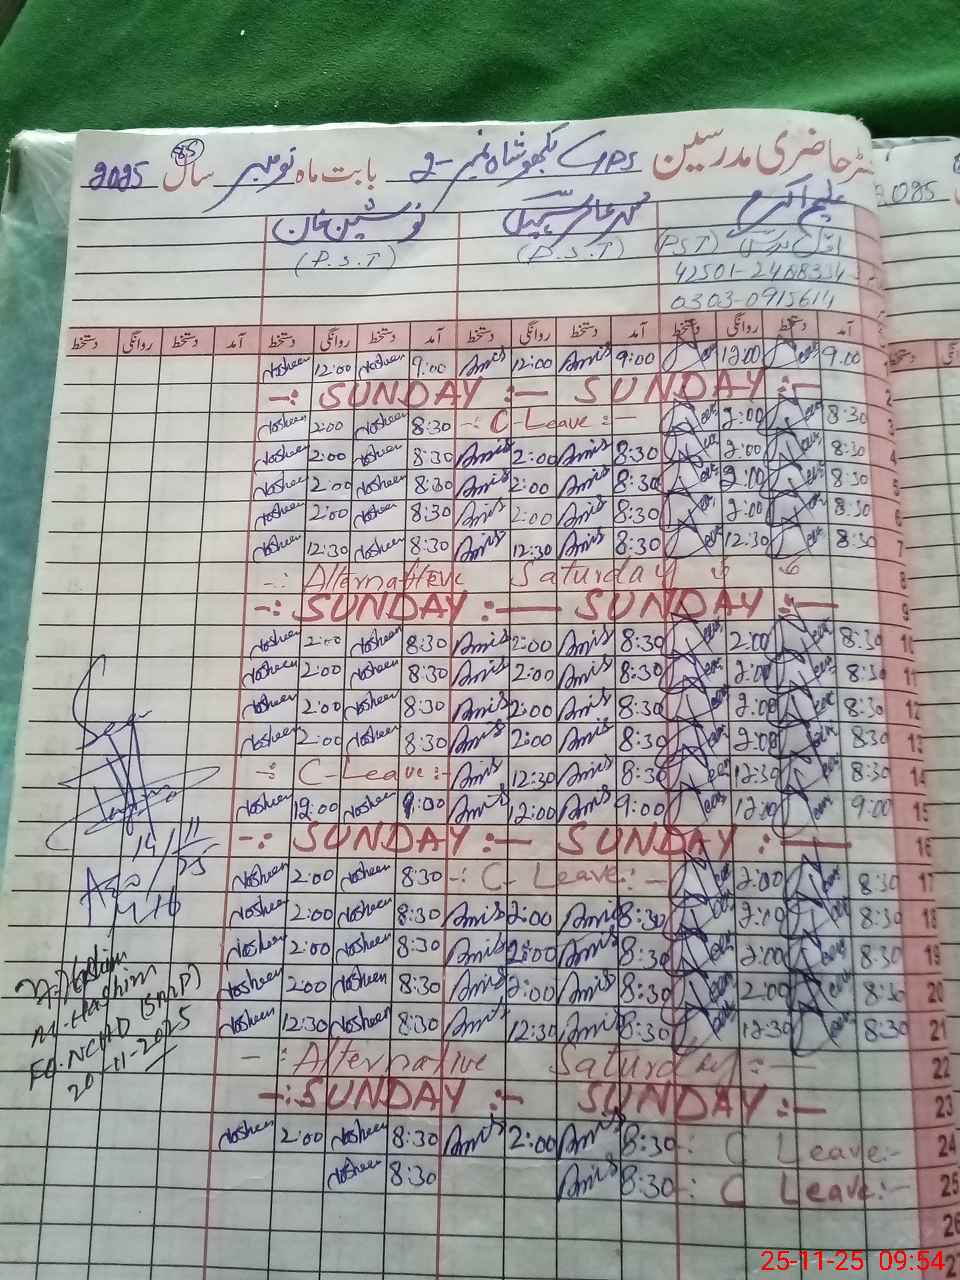 رجسٹر حاضری مدرسین GPS نکھو شاہ نمبر-2 بابت ماہ نومبر سال 2025
نوشین خان
(P.S.T) (P.S.T) (PST)
0303-0915614
آمد دستخط روانگی دستخط آمد دستخط روانگی دستخط آمد دستخط روانگی دستخط آمد دستخط روانگی دستخط
9:00 12:00 9:00 Anis 12:00 Anis 9:00 Nosheen 12:00 Nosheen
2 -: SUNDAY :- SUNDAY :-
3 8:30 2:00 -: C-Leave :- 8:30 Nosheen 2:00 Nosheen
4 8:30 2:00 8:30 Anis 2:00 Anis 8:30 Nosheen 2:00 Nosheen
5 8:30 2:00 8:30 Anis 2:00 Anis 8:30 Nosheen 2:00 Nosheen
6 8:30 2:00 8:30 Anis 2:00 Anis 8:30 Nosheen 2:00 Nosheen
7 8:30 12:30 8:30 Anis 12:30 Anis 8:30 Nosheen 12:30 Nosheen
8 -: Alternative Saturday
9 -: SUNDAY :- SUNDAY :-
10 8:30 2:00 8:30 Anis 2:00 Anis 8:30 Nosheen 2:00 Nosheen
11 8:30 2:00 8:30 Anis 2:00 Anis 8:30 Nosheen 2:00 Nosheen
12 8:30 2:00 8:30 Anis 2:00 Anis 8:30 Nosheen 2:00 Nosheen
13 8:30 2:00 8:30 Anis 2:00 Anis 8:30 Nosheen 2:00 Nosheen
14 8:30 12:30 8:30 Anis 12:30 Anis -: C-Leave :-
15 9:00 12:00 9:00 Anis 12:00 Anis 9:00 Nosheen 12:00 Nosheen
16 -: SUNDAY :- SUNDAY :-
17 8:30 2:00 -: C-Leave :- 8:30 Nosheen 2:00 Nosheen
18 8:30 2:00 8:30 Anis 2:00 Anis 8:30 Nosheen 2:00 Nosheen
19 8:30 2:00 8:30 Anis 2:00 Anis 8:30 Nosheen 2:00 Nosheen
20 8:30 2:00 8:30 Anis 2:00 Anis 8:30 Nosheen 2:00 Nosheen
21 8:30 12:30 8:30 Anis 12:30 Anis 8:30 Nosheen 12:30 Nosheen
22 -: Alternative Saturday :-
23 -: SUNDAY :- SUNDAY :-
24 -: C Leave :- 8:30 Anis 2:00 Anis 8:30 Nosheen 2:00 Nosheen
25 -: C Leave :- 8:30 Anis 8:30 Nosheen
26
27
14/11/25
M-Hashim
20-11-2025
25-11-25 09:54